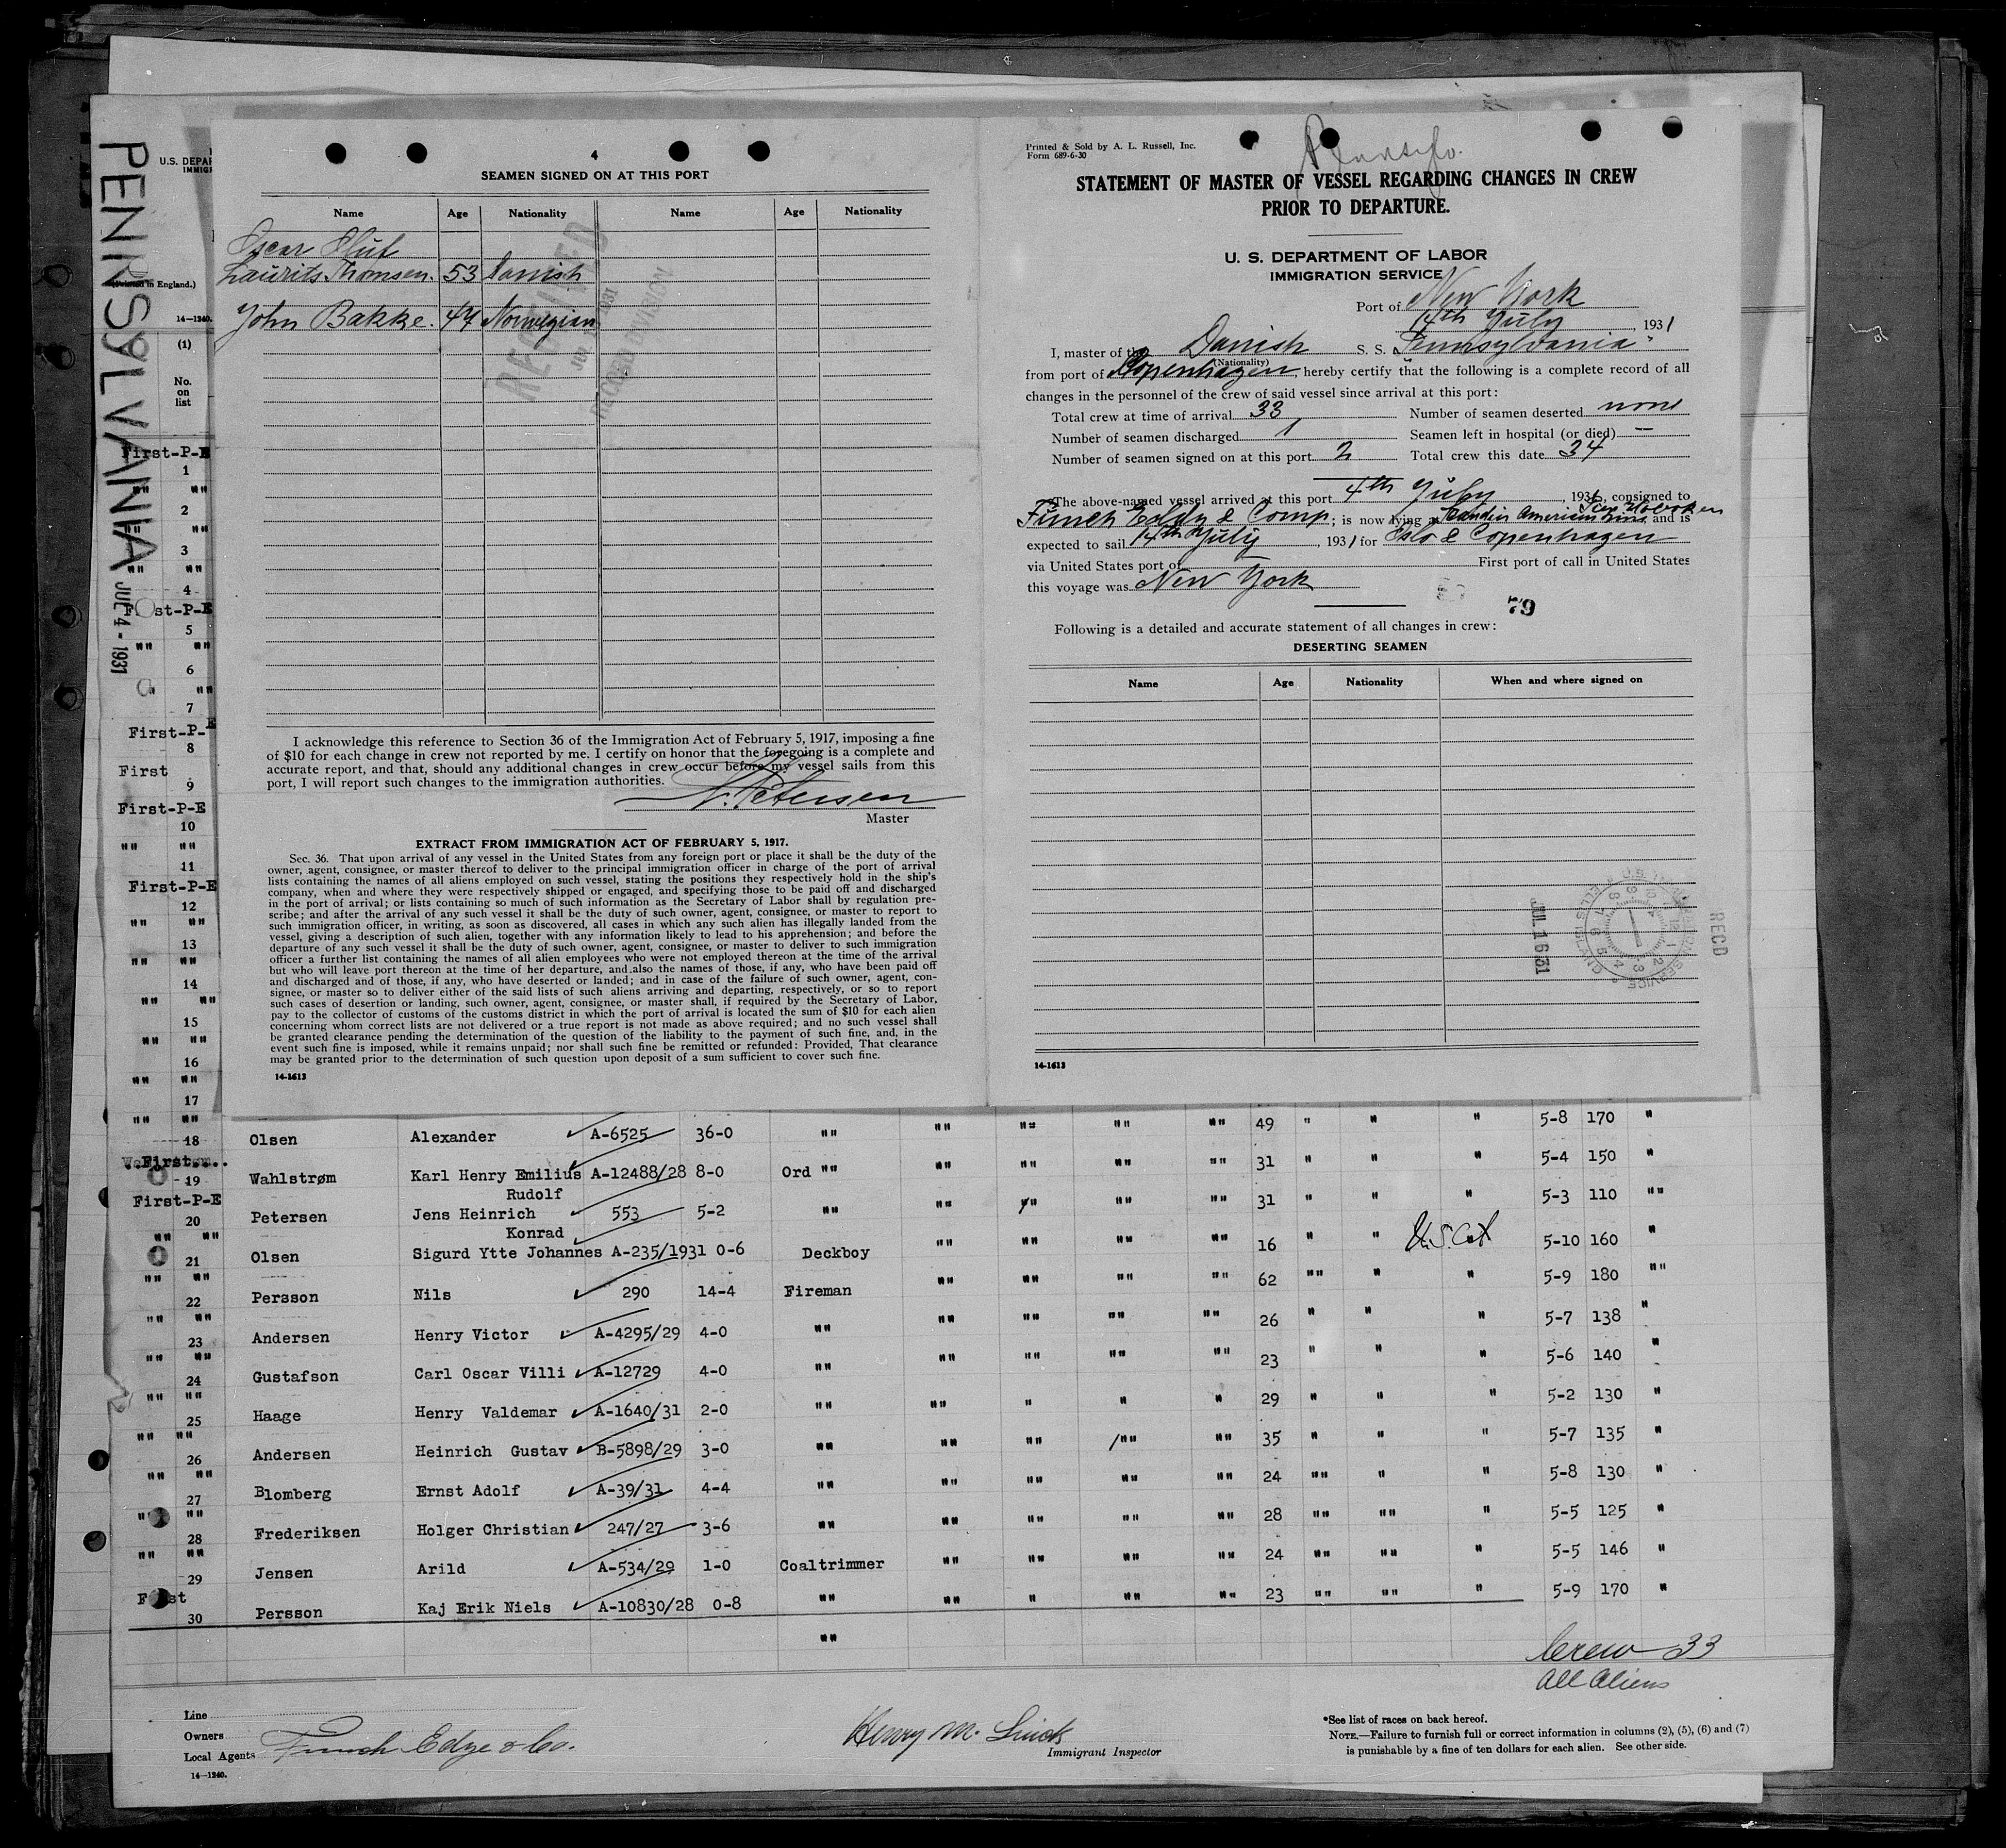 PENNSYLVANIA
JUL 4 - 1931
U.S. DEPAR
IMMIGR
(Printed in England.)
14—1240.
(1)
No.
on
list
4
SEAMEN SIGNED ON AT THIS PORT
Name Age Nationality Name Age Nationality
Oscar Oluf
Laurits Thomsen. 53 Danish
John Bakke. 44 Norwegian
RECEIVED
1931
RECORD DIVISION
I acknowledge this reference to Section 36 of the Immigration Act of February 5, 1917, imposing a fine
of $10 for each change in crew not reported by me. I certify on honor that the foregoing is a complete and
accurate report, and that, should any additional changes in crew occur before my vessel sails from this
port, I will report such changes to the immigration authorities.
N. Petersen
Master
EXTRACT FROM IMMIGRATION ACT OF FEBRUARY 5, 1917.
Sec. 36. That upon arrival of any vessel in the United States from any foreign port or place it shall be the duty of the
owner, agent, consignee, or master thereof to deliver to the principal immigration officer in charge of the port of arrival
lists containing the names of all aliens employed on such vessel, stating the positions they respectively hold in the ship's
company, when and where they were respectively shipped or engaged, and specifying those to be paid off and discharged
in the port of arrival; or lists containing so much of such information as the Secretary of Labor shall by regulation pre-
scribe; and after the arrival of any such vessel it shall be the duty of such owner, agent, consignee, or master to report to
such immigration officer, in writing, as soon as discovered, all cases in which any such alien has illegally landed from the
vessel, giving a description of such alien, together with any information likely to lead to his apprehension; and before the
departure of any such vessel it shall be the duty of such owner, agent, consignee, or master to deliver to such immigration
officer a further list containing the names of all alien employees who were not employed thereon at the time of the arrival
but who will leave port thereon at the time of her departure, and also the names of those, if any, who have been paid off
and discharged and of those, if any, who have deserted or landed; and in case of the failure of such owner, agent, con-
signee, or master so to deliver either of the said lists of such aliens arriving and departing, respectively, or so to report
such cases of desertion or landing, such owner, agent, consignee, or master shall, if required by the Secretary of Labor,
pay to the collector of customs of the customs district in which the port of arrival is located the sum of $10 for each alien
concerning whom correct lists are not delivered or a true report is not made as above required; and no such vessel shall
be granted clearance pending the determination of the question of the liability to the payment of such fine, and, in the
event such fine is imposed, while it remains unpaid; nor shall such fine be remitted or refunded: Provided, That clearance
may be granted prior to the determination of such question upon deposit of a sum sufficient to cover such fine.
14-1613
Printed & Sold by A. L. Russell, Inc.
Form 689-6-30
STATEMENT OF MASTER OF VESSEL REGARDING CHANGES IN CREW
PRIOR TO DEPARTURE.
U. S. DEPARTMENT OF LABOR
IMMIGRATION SERVICE
Port of New York
14th July, 1931
I, master of the Danish S. S. "Pennsylvania"
(Nationality)
from port of Copenhagen, hereby certify that the following is a complete record of all
changes in the personnel of the crew of said vessel since arrival at this port:
Total crew at time of arrival 33 Number of seamen deserted none
Number of seamen discharged 1 Seamen left in hospital (or died) —
Number of seamen signed on at this port 2 Total crew this date 34
The above-named vessel arrived at this port 4th July, 1931, consigned to
Funch Edye & Comp; is now lying at Scandin American Line Pier Hoboken and is
expected to sail 14th July, 1931 for Oslo & Copenhagen
via United States port of First port of call in United States
this voyage was New York
79
Following is a detailed and accurate statement of all changes in crew:
DESERTING SEAMEN
Name Age Nationality When and where signed on
JUL 16 31
RECD
14-1613
First-P-E
1
"" ""
2
"" ""
3
"" ""
4
First-P-E
5
"" ""
6
"" ""
7
First-P-E
8
First
9
First-P-E
10
"" ""
11
First-P-E
12
"" ""
13
"" ""
14
"" ""
15
"" ""
16
"" ""
17
"" ""
18 Olsen Alexander A-6525 36-0 "" "" "" "" "" 49 " " " 5-8 170 "
First
19 Wahlstrøm Karl Henry Emilius A-12488/28 8-0 Ord "" "" "" "" "" 31 " " " 5-4 150 "
First-P-E Rudolf
20 Petersen Jens Heinrich 553 5-2 "" "" "" "" "" 31 " " " 5-3 110 ""
"" "" Konrad
21 Olsen Sigurd Ytte Johannes A-235/1931 0-6 Deckboy "" "" "" "" 16 " " U.S. Cit 5-10 160 "
"" ""
22 Persson Nils 290 14-4 Fireman "" "" "" "" 62 "" " " 5-9 180 ""
"" ""
23 Andersen Henry Victor A-4295/29 4-0 "" "" "" "" "" 26 " " " 5-7 138 "
"" ""
24 Gustafson Carl Oscar Villi A-12729 4-0 "" "" "" "" "" 23 " " " 5-6 140 "
"" ""
25 Haage Henry Valdemar A-1640/31 2-0 "" "" " " " 29 " " " 5-2 130 "
"" ""
26 Andersen Heinrich Gustav B-5898/29 3-0 "" "" "" "" "" 35 " " " 5-7 135 "
"" ""
27 Blomberg Ernst Adolf A-39/31 4-4 "" "" "" "" "" 24 "" " " 5-8 130 "
"" ""
28 Frederiksen Holger Christian 247/27 3-6 "" "" "" "" "" 28 "" "" " 5-5 125 "
"" ""
29 Jensen Arild A-534/29 1-0 Coaltrimmer "" "" "" "" 24 "" "" " 5-5 146 "
First
30 Persson Kaj Erik Niels A-10830/28 0-8 "" "" " "" "" 23 "" "" " 5-9 170 "
""
Crew 33
All Aliens
Line
Owners
Local Agents Funch Edye & Co.
14—1240.
Henry M.
Immigrant Inspector
*See list of races on back hereof.
NOTE.—Failure to furnish full or correct information in columns (2), (5), (6) and (7)
is punishable by a fine of ten dollars for each alien. See other side.